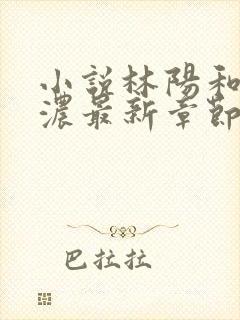 小說林陽和
濃最新章節
巴拉拉